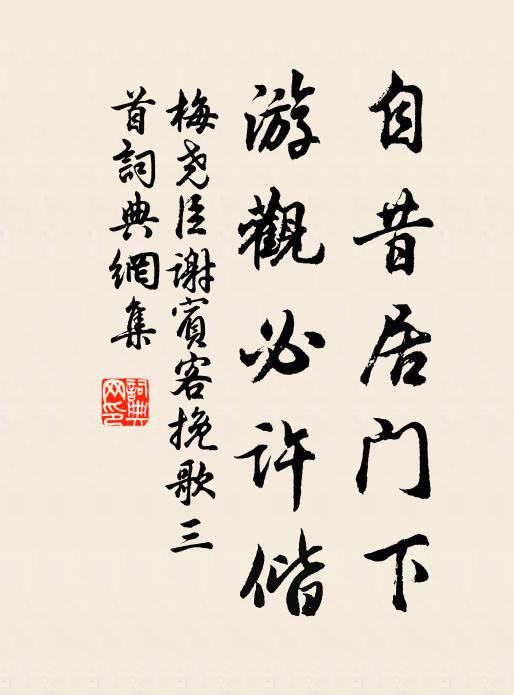 自昔居门下
游觀必许偕
梅尧臣謝賓客挽歌三
首詞典網集
詞典
网印